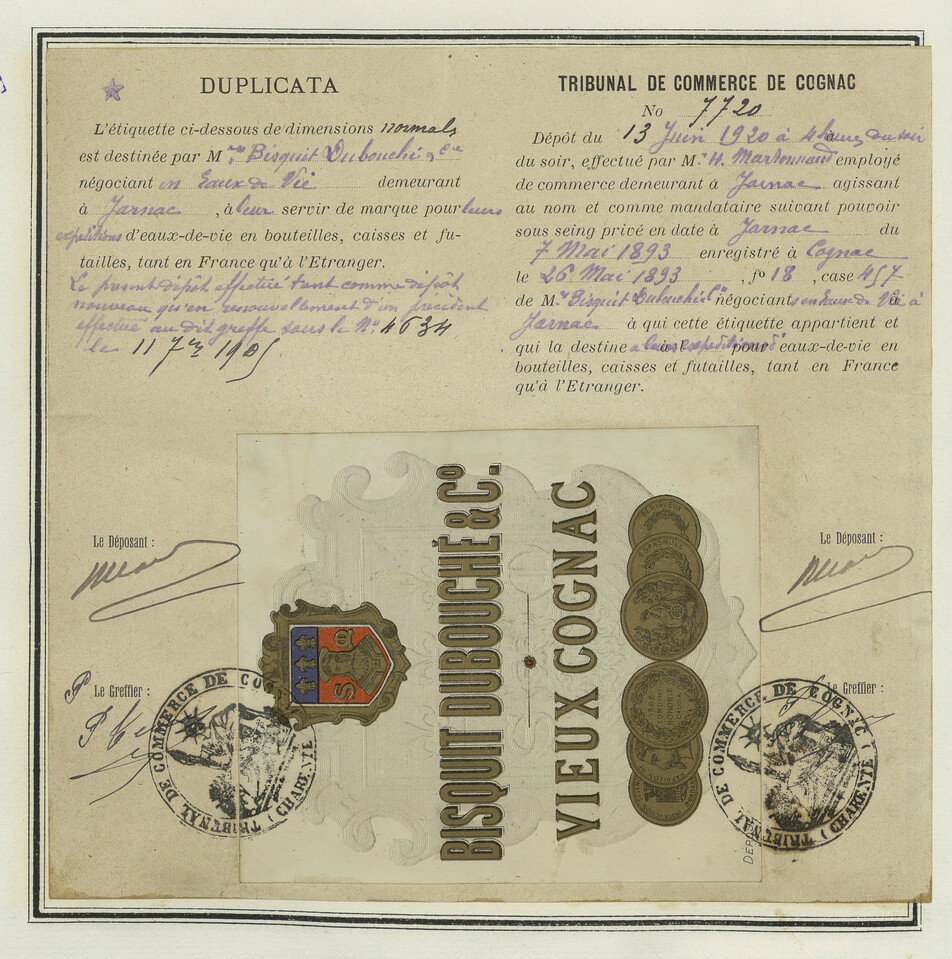 DUPLICATA
L'étiquette ci-dessous de dimensions normals
est destinée par M.rs Bisquit Dubouché & Cie
négociant en Eaux de Vie demeurant
à Jarnac, à leur servir de marque pour leurs
expéditions d'eaux-de-vie en bouteilles, caisses et fu-
tailles, tant en France qu'à l'Etranger.
Le présent dépôt effectué tant comme dépôt
nouveau qu'en renouvellement d'un précédent
effectué au dit greffe sous le No. 4634
le 11 7re 1905
TRIBUNAL DE COMMERCE DE COGNAC
No 7720
Dépôt du 13 Juin 1920 à 4 heures du soir
du soir, effectué par M. H. employé
de commerce demeurant à Jarnac agissant
au nom et comme mandataire suivant pouvoir
sous seing privé en date à Jarnac du
7 Mai 1893 enregistré à Cognac
le 26 Mai 1893, fo 18, case 457
de M.rs Bisquit Dubouché & Cie négociants en Eaux de Vie à
Jarnac à qui cette étiquette appartient et
qui la destine à leurs expéditions d' pour eaux-de-vie en
bouteilles, caisses et futailles, tant en France
qu'à l'Etranger.
Le Déposant :
Le Déposant :
P Le Greffier :
Le Greffier :
BISQUIT DUBOUCHÉ & Co.
VIEUX COGNAC
TRIBUNAL DE COMMERCE DE COGNAC (CHARENTE)
TRIBUNAL DE COMMERCE DE COGNAC (CHARENTE)